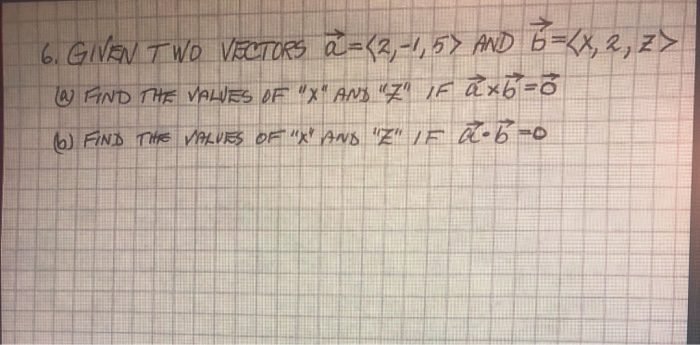 6. GIVEN TWO VECTORS a⃗=<2,-1,5> AND b⃗=<x, 2, z>
(a) FIND THE VALUES OF "X" AND "Z" IF a⃗×b⃗=0⃗
(b) FIND THE VALUES OF "X" AND "Z" IF a⃗·b⃗=0